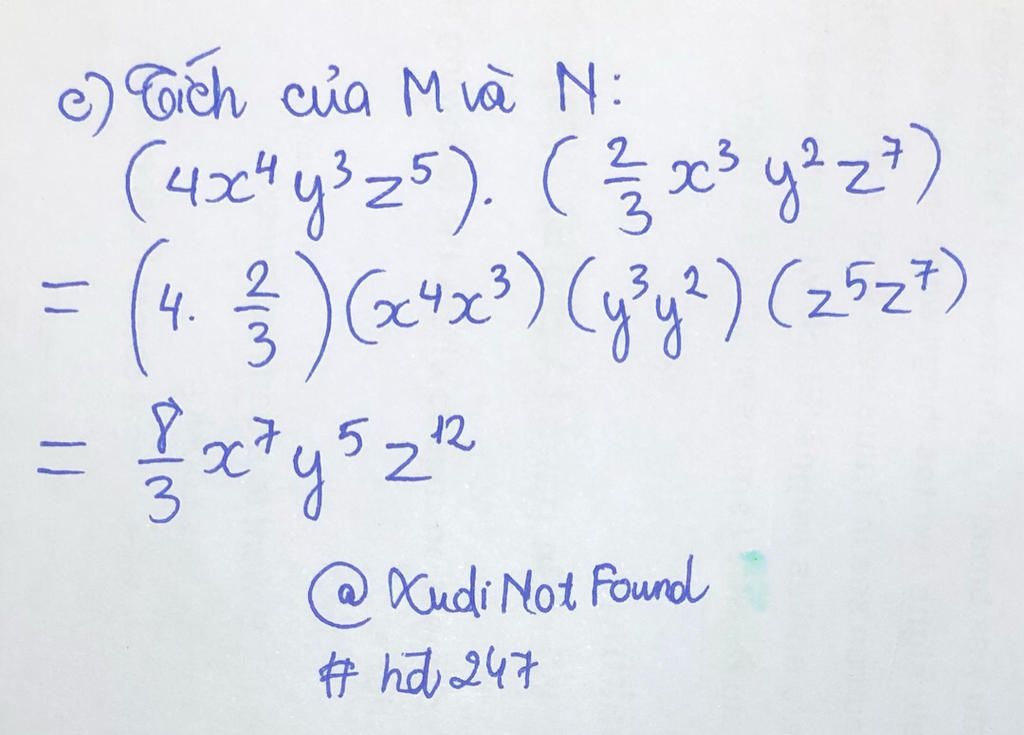 c) Tích của M và N:
(4x⁴y³z⁵). (2/3 x³y²z⁷)
= (4. 2/3)(x⁴x³)(y³y²)(z⁵z⁷)
= 8/3 x⁷y⁵z¹²
@XudiNotFound
#hđ247